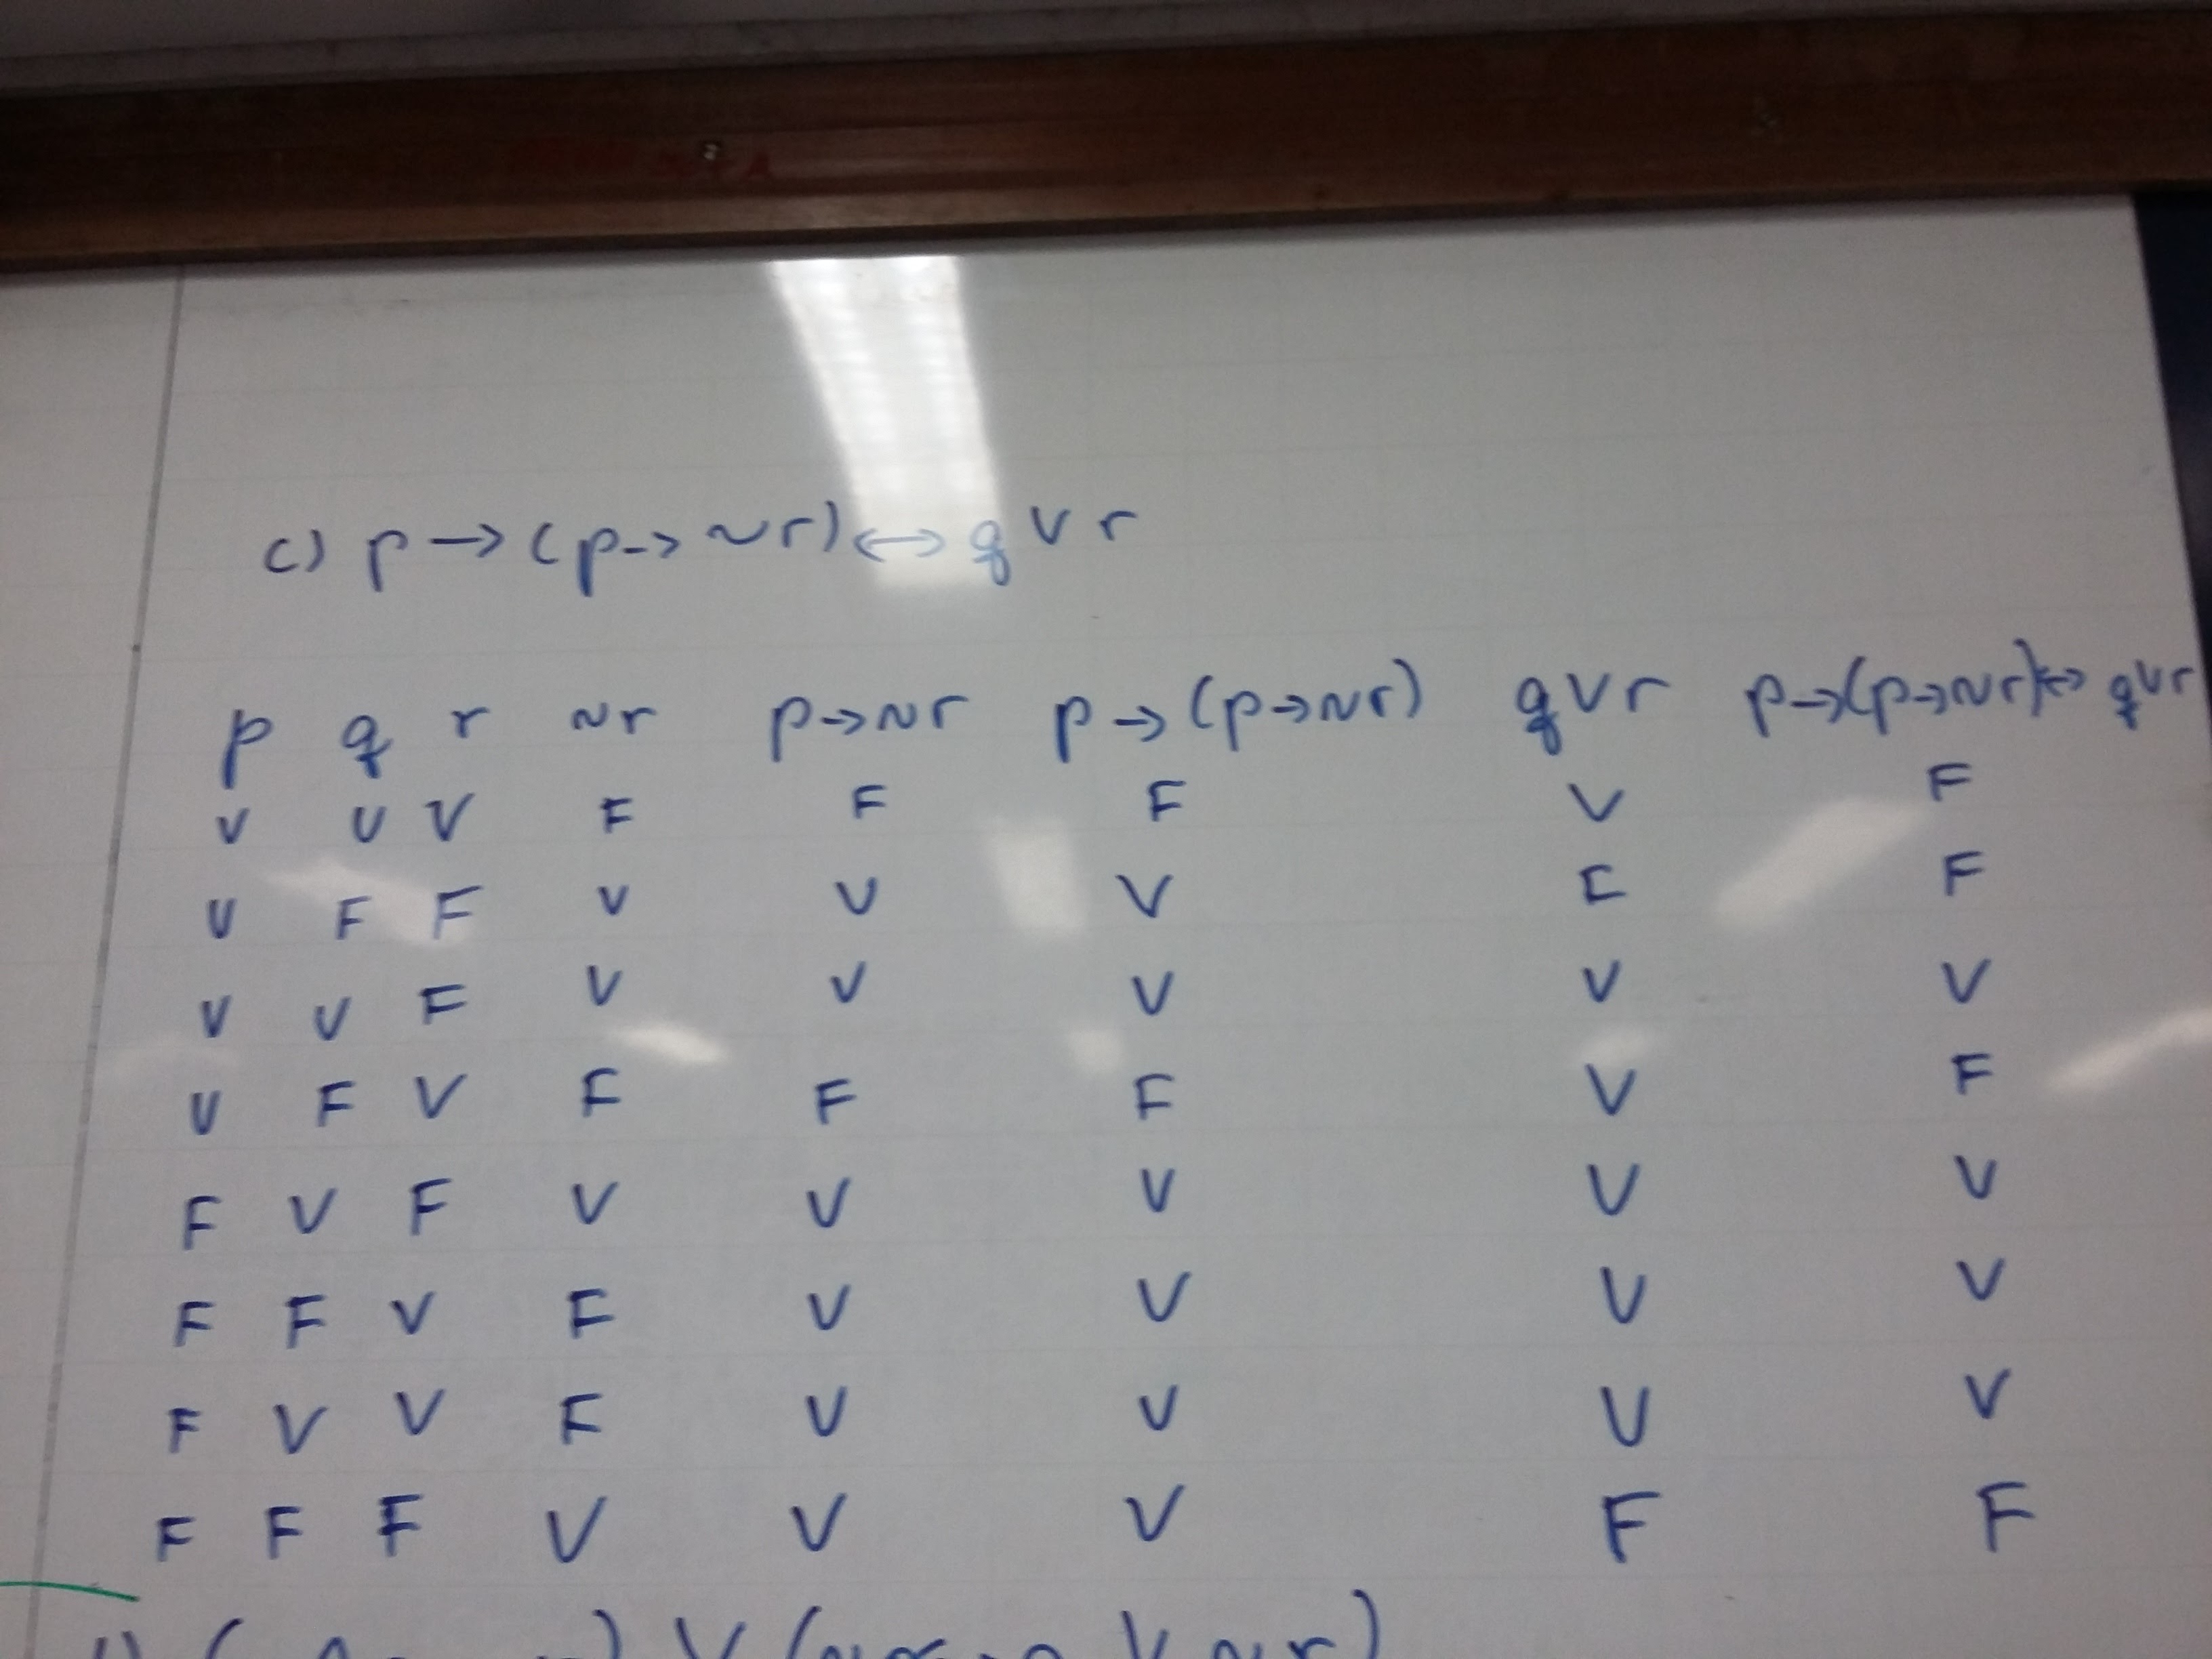 c) p → (p → ~r) ↔ q ∨ r
p q r ~r p → ~r p → (p → ~r) q ∨ r p → (p → ~r) ↔ q ∨ r
V V V F F F V F
V F F V V V F F
V V F V V V V V
V F V F F F V F
F V F V V V V V
F F V F V V V V
F V V F V V V V
F F F V V V F F